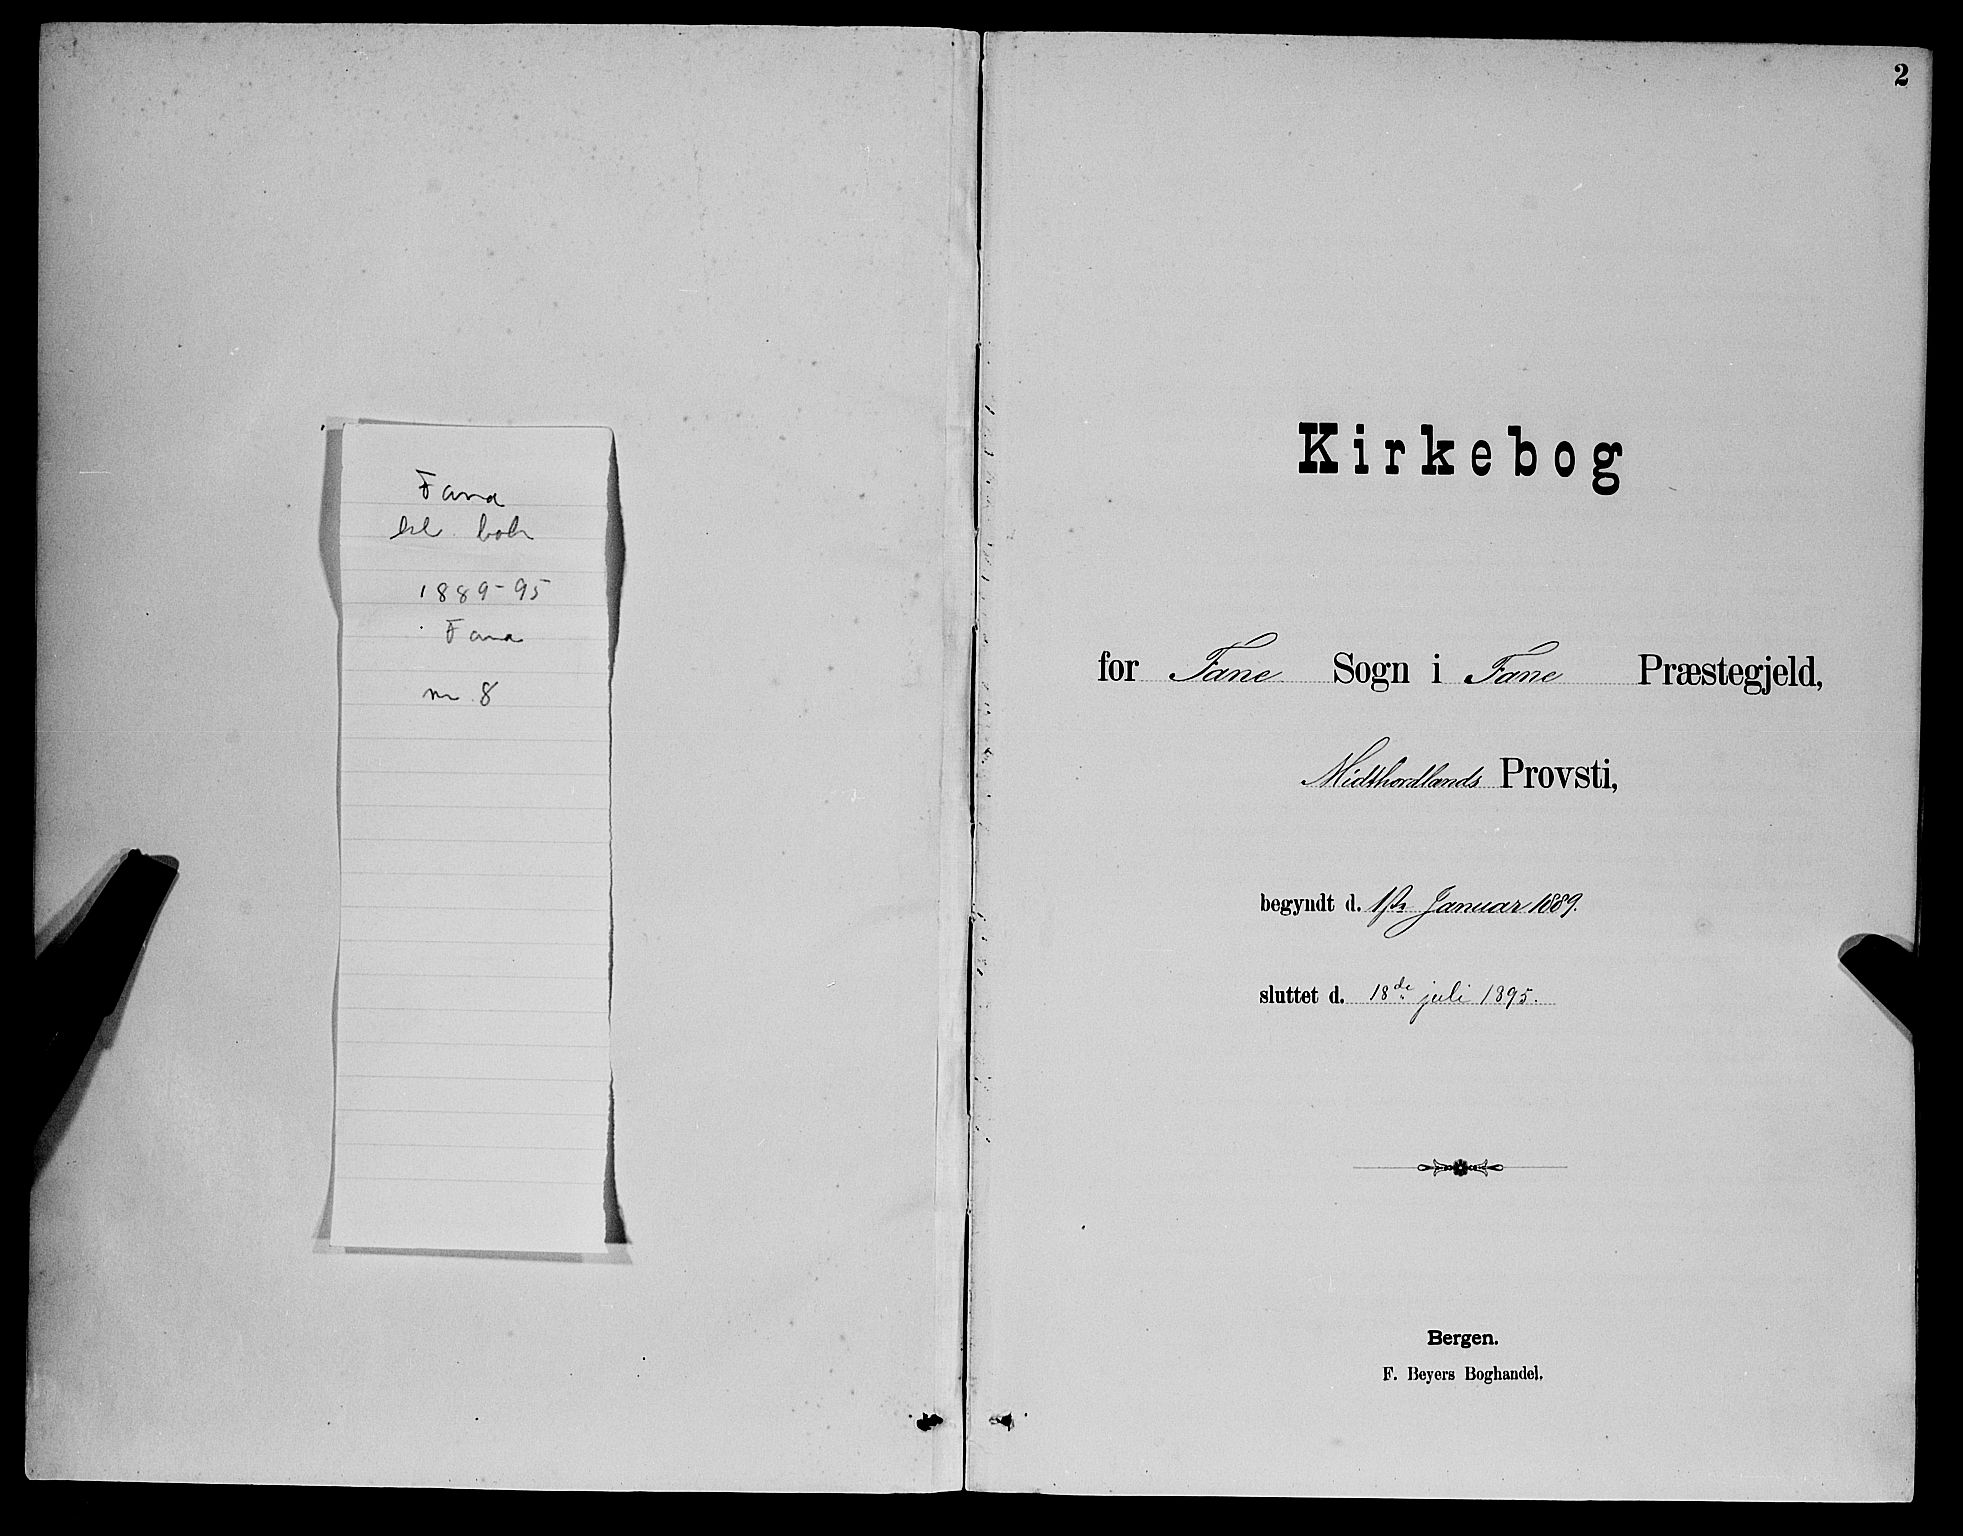 Fana
kl. bok
1889-95
Fana
nr. 8
2
Kirkebog
for Fane Sogn i Fane Præstegjeld,
Midthordlands Provsti,
begyndt d. 1ste Januar 1889.
sluttet d. 18de juli 1895.
Bergen.
F. Beyers Boghandel.